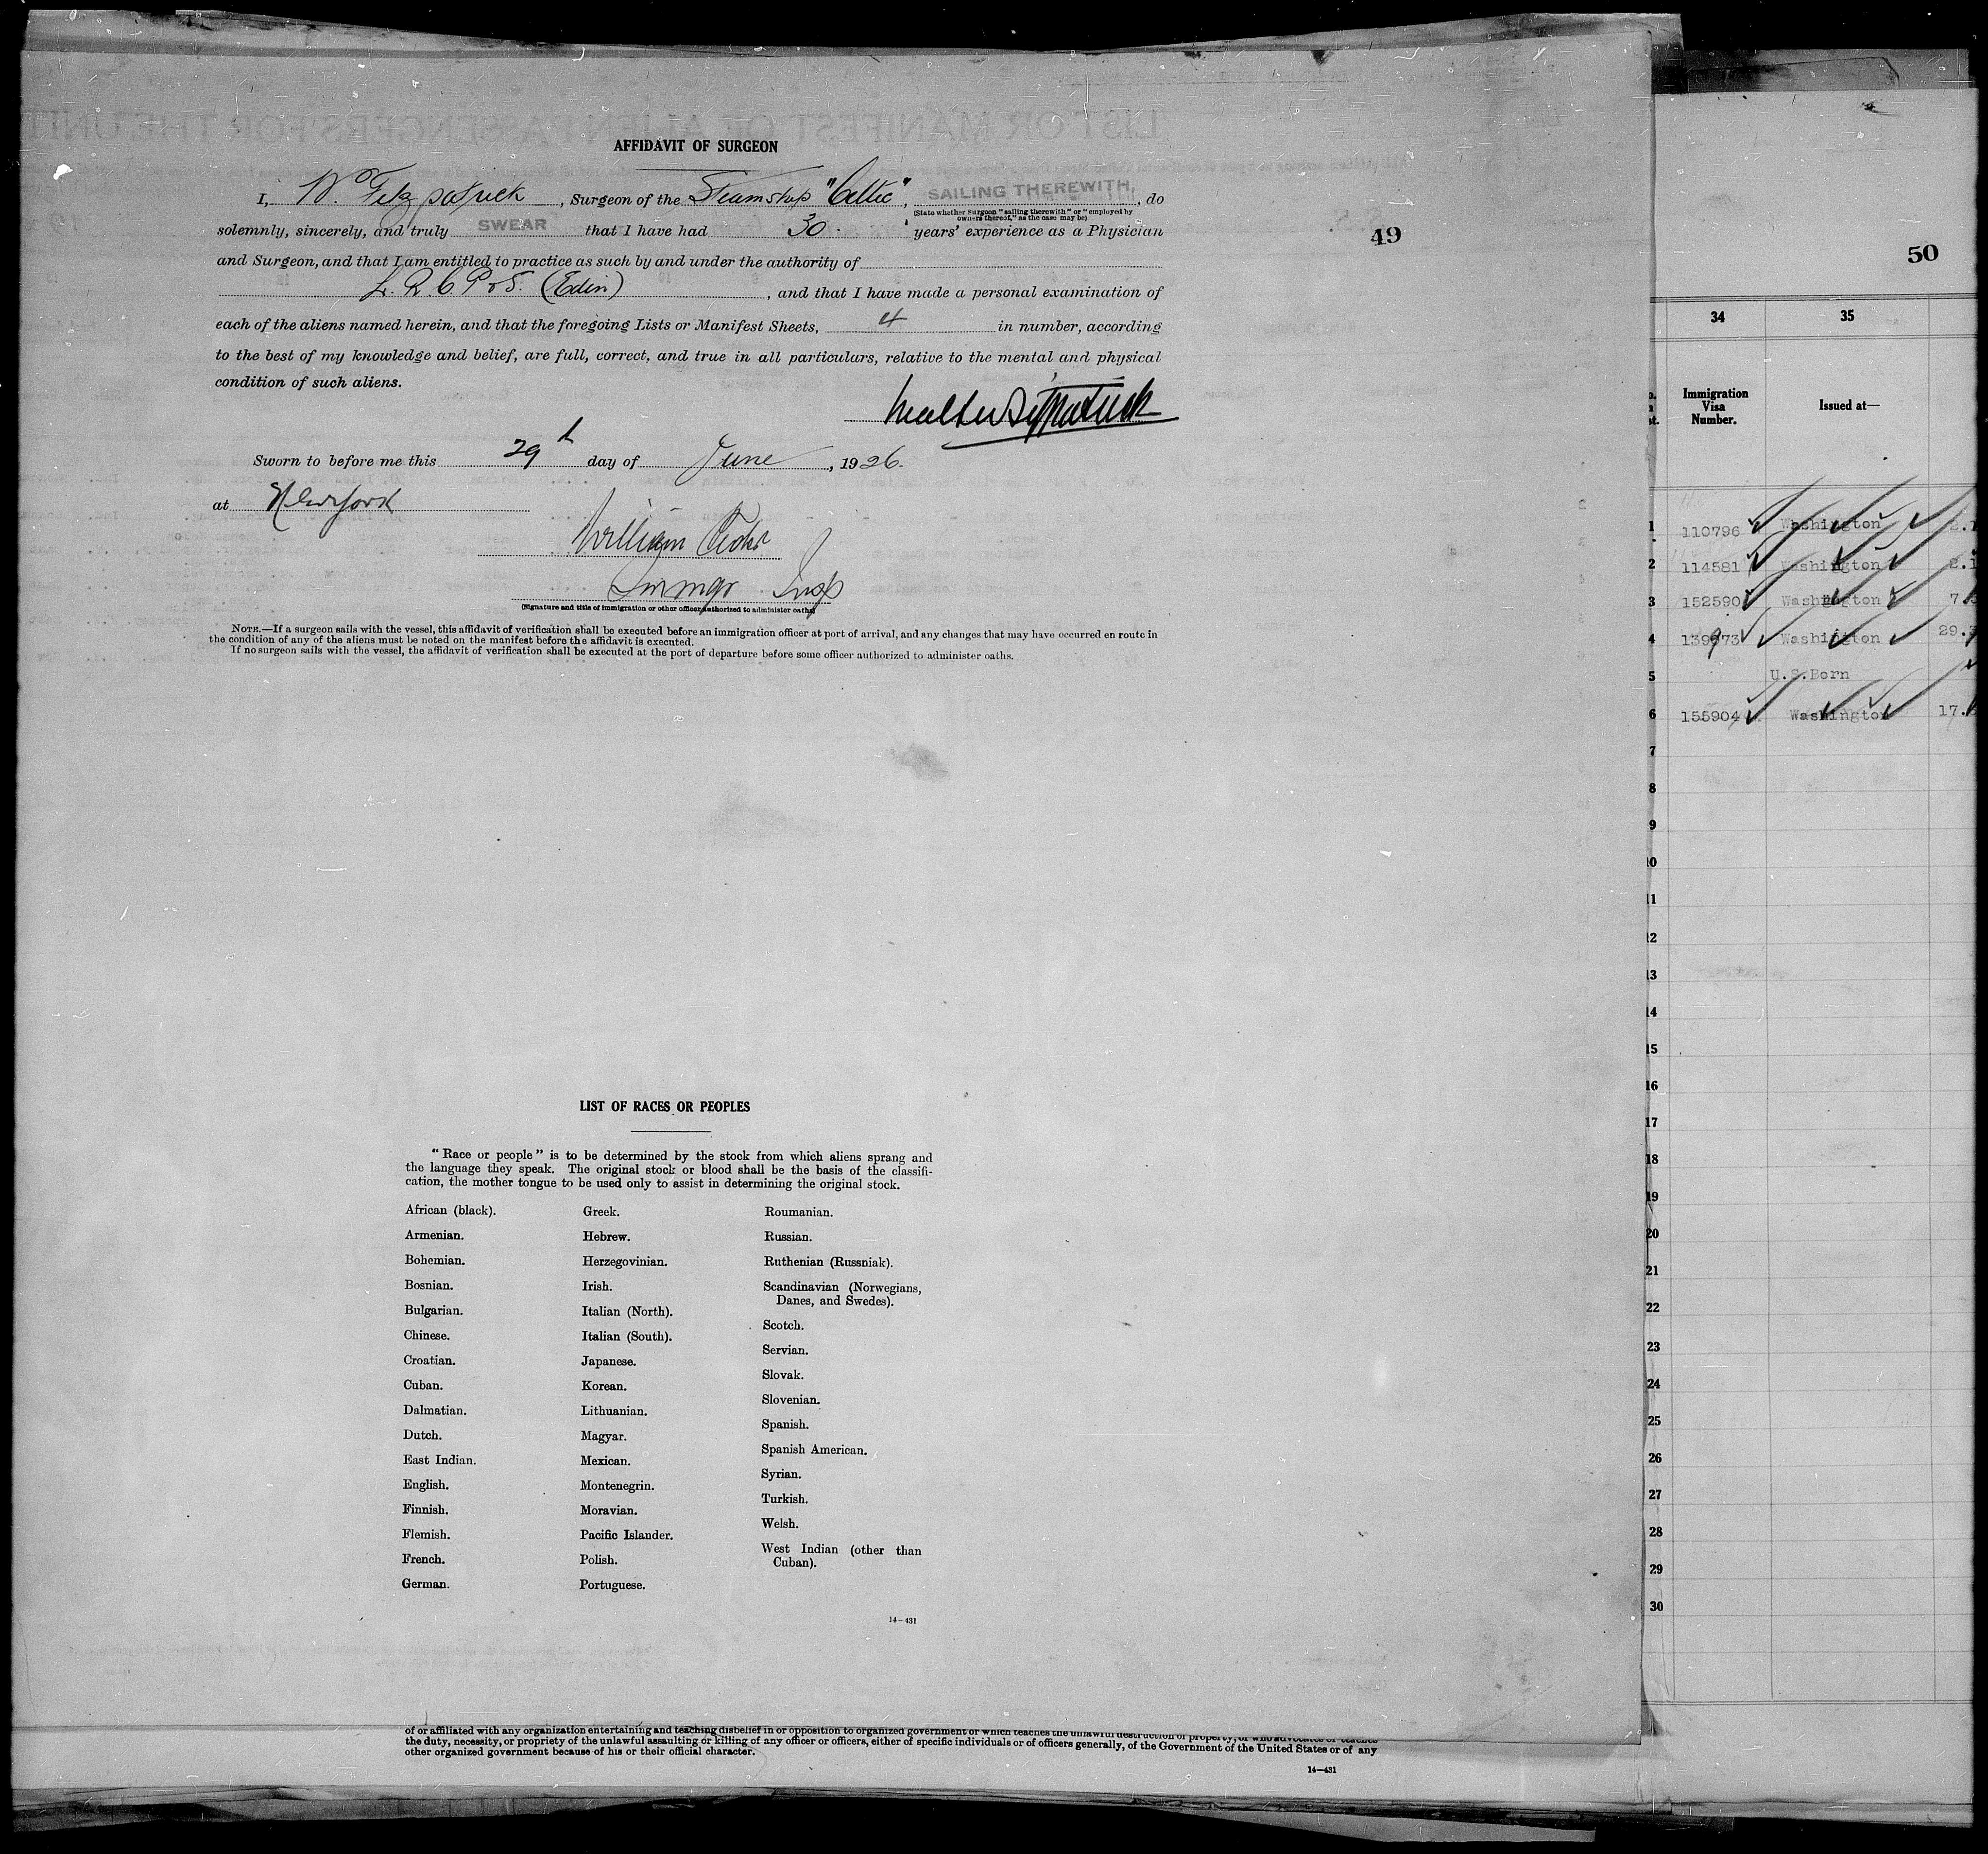 AFFIDAVIT OF SURGEON
I, W. Fitzpatrick, Surgeon of the Steamship "Celtic", SAILING THEREWITH, do
(State whether Surgeon "sailing therewith" or "employed by
owners thereof," as the case may be)
solemnly, sincerely, and truly SWEAR that I have had 30 years' experience as a Physician
and Surgeon, and that I am entitled to practice as such by and under the authority of
L. R. C. P & S. (Edin), and that I have made a personal examination of
each of the aliens named herein, and that the foregoing Lists or Manifest Sheets, 4 in number, according
to the best of my knowledge and belief, are full, correct, and true in all particulars, relative to the mental and physical
condition of such aliens.
Walter Fitzpatrick
Sworn to before me this 29th day of June, 1926.
at New York
William
Immgr Insp
(Signature and title of immigration or other officer authorized to administer oaths)
NOTE.—If a surgeon sails with the vessel, this affidavit of verification shall be executed before an immigration officer at port of arrival, and any changes that may have occurred en route in
the condition of any of the aliens must be noted on the manifest before the affidavit is executed.
If no surgeon sails with the vessel, the affidavit of verification shall be executed at the port of departure before some officer authorized to administer oaths.
49
LIST OF RACES OR PEOPLES
"Race or people" is to be determined by the stock from which aliens sprang and
the language they speak. The original stock or blood shall be the basis of the classifi-
cation, the mother tongue to be used only to assist in determining the original stock.
African (black).
Armenian.
Bohemian.
Bosnian.
Bulgarian.
Chinese.
Croatian.
Cuban.
Dalmatian.
Dutch.
East Indian.
English.
Finnish.
Flemish.
French.
German.
Greek.
Hebrew.
Herzegovinian.
Irish.
Italian (North).
Italian (South).
Japanese.
Korean.
Lithuanian.
Magyar.
Mexican.
Montenegrin.
Moravian.
Pacific Islander.
Polish.
Portuguese.
Roumanian.
Russian.
Ruthenian (Russniak).
Scandinavian (Norwegians,
Danes, and Swedes).
Scotch.
Servian.
Slovak.
Slovenian.
Spanish.
Spanish American.
Syrian.
Turkish.
Welsh.
West Indian (other than
Cuban).
14-431
of or affiliated with any organization entertaining and teaching disbelief in or opposition to organized government or which teaches the unlawful destruction of property, or who advocates or teaches
the duty, necessity, or propriety of the unlawful assaulting or killing of any officer or officers, either of specific individuals or of officers generally, of the Government of the United States or of any
other organized government because of his or their official character.
14-431
50
34 35
Immigration
Visa
Number.
Issued at—
1 110796 Washington
2 114581 Washington
3 152590 Washington 7.
4 139973 Washington 29.
5 U.S.Born
6 155904 Washington 17.
7
8
9
10
11
12
13
14
15
16
17
18
19
20
21
22
23
24
25
26
27
28
29
30